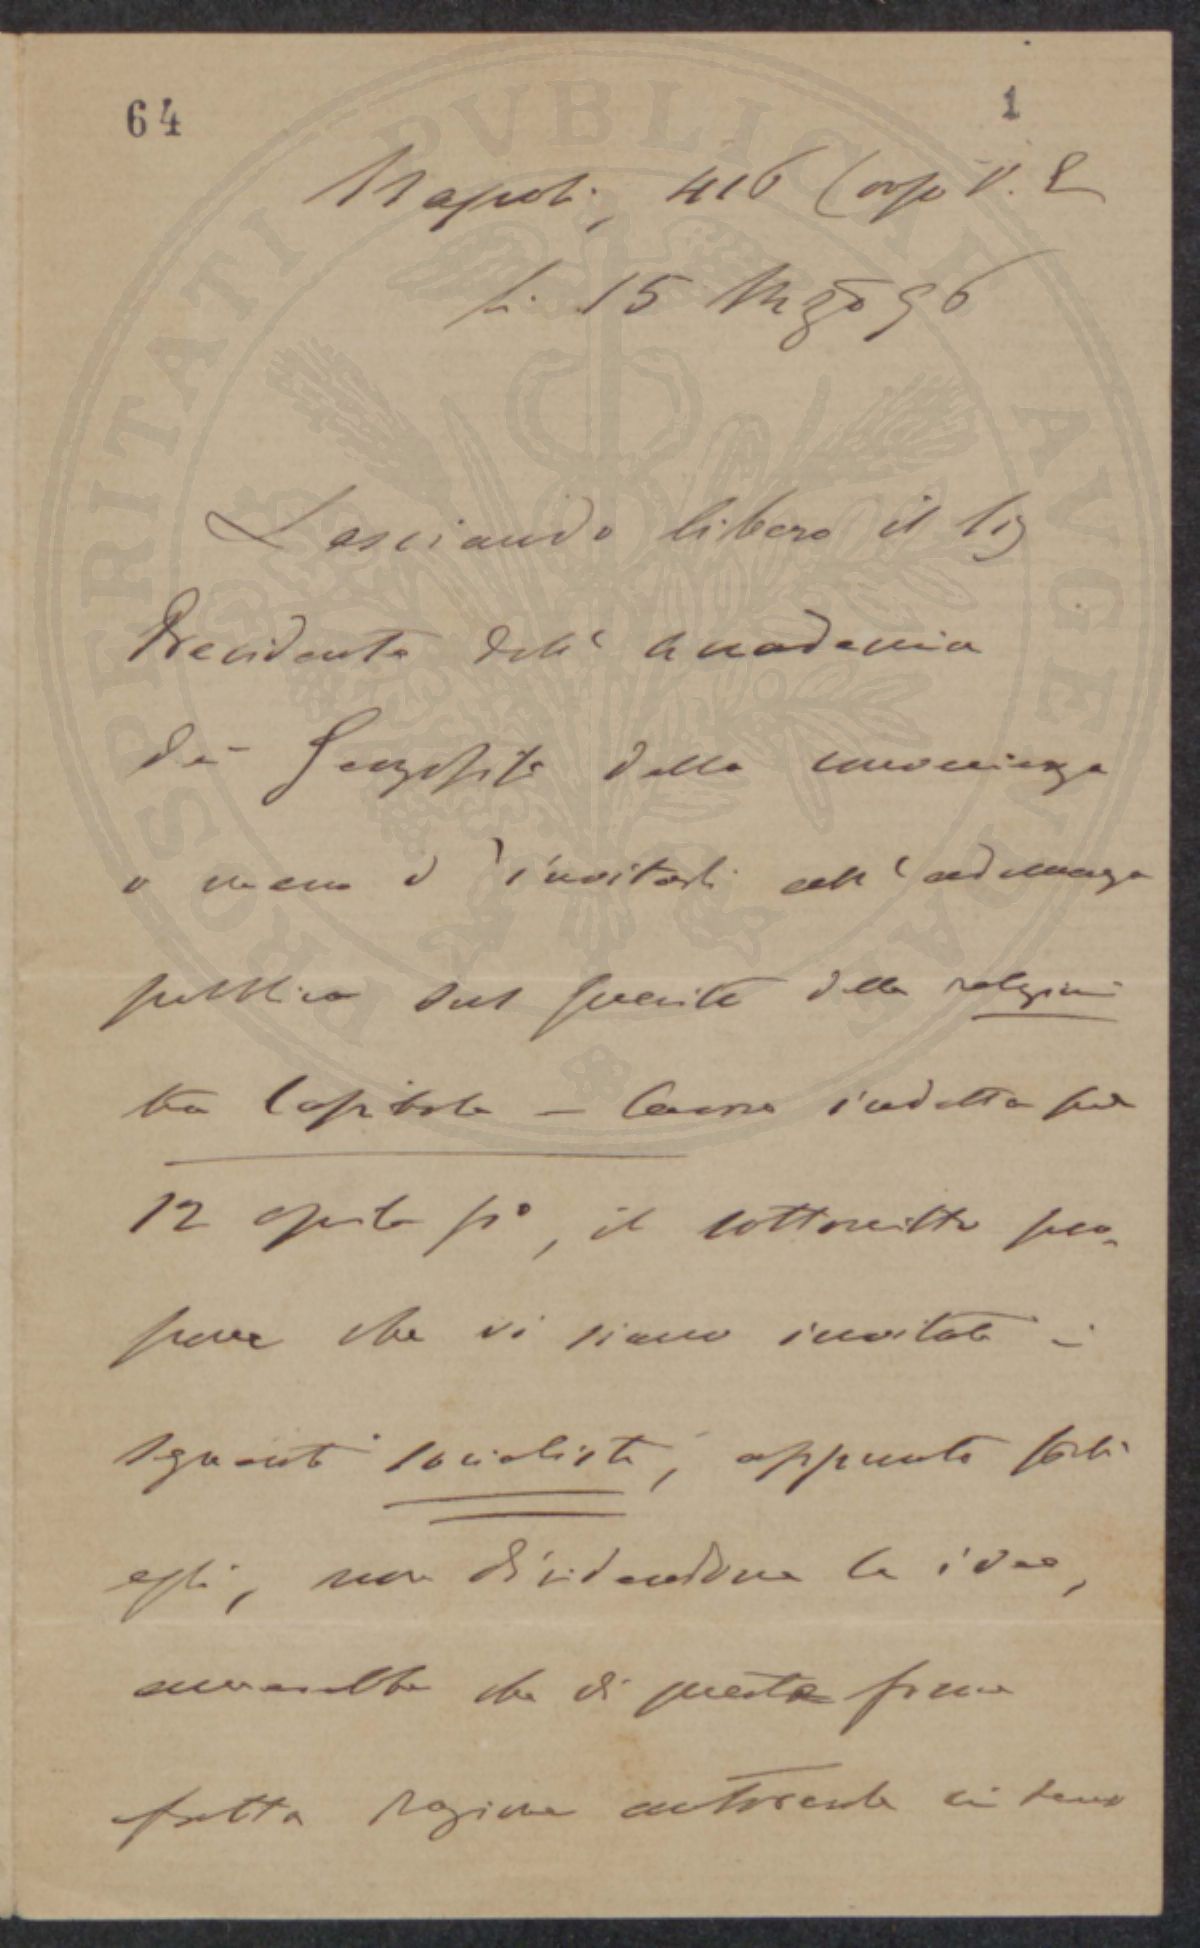 64
1
Napoli, 416 Corso V. E
lì 15 Mzo 96
Lasciando libero il Sig
Presidente dell'Accademia
dei Georgofili della convenienza
o meno d'invitarli all'adunanza
pubblica sul quesito delle relazioni
tra Capitale - Lavoro indetta pel
12 aprile po, il sottoscritto pro-
pone che vi siano invitati i
seguenti socialisti, appunto perchè
egli, non dividendone le idee,
amerebbe che di queste fosse
fatta ragione in seno
PROSPERITATI PVBLICAE AVGENDAE